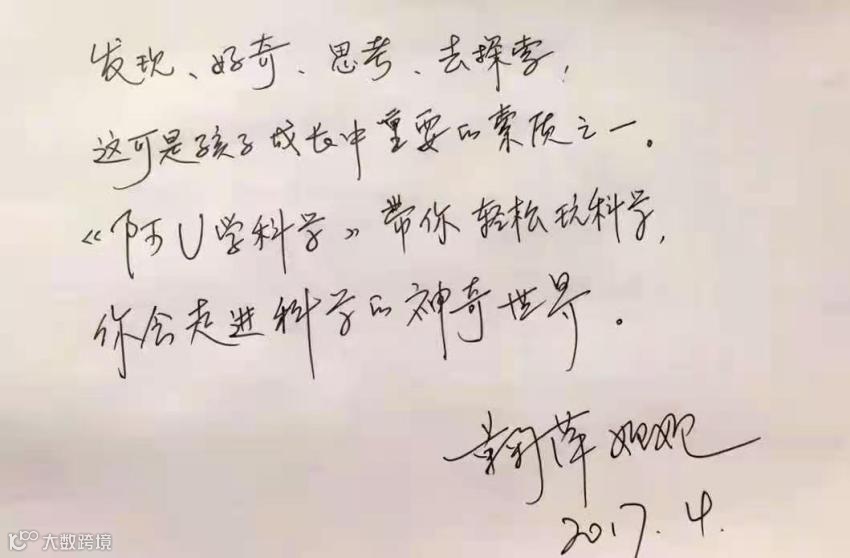 发现、好奇、思考、去探索，
这可是孩子成长中重要的素质之一。
《阿U学科学》带你轻松玩科学，
你会走进科学的神奇世界。
鞠萍姐姐
2017.4.
大数跨境